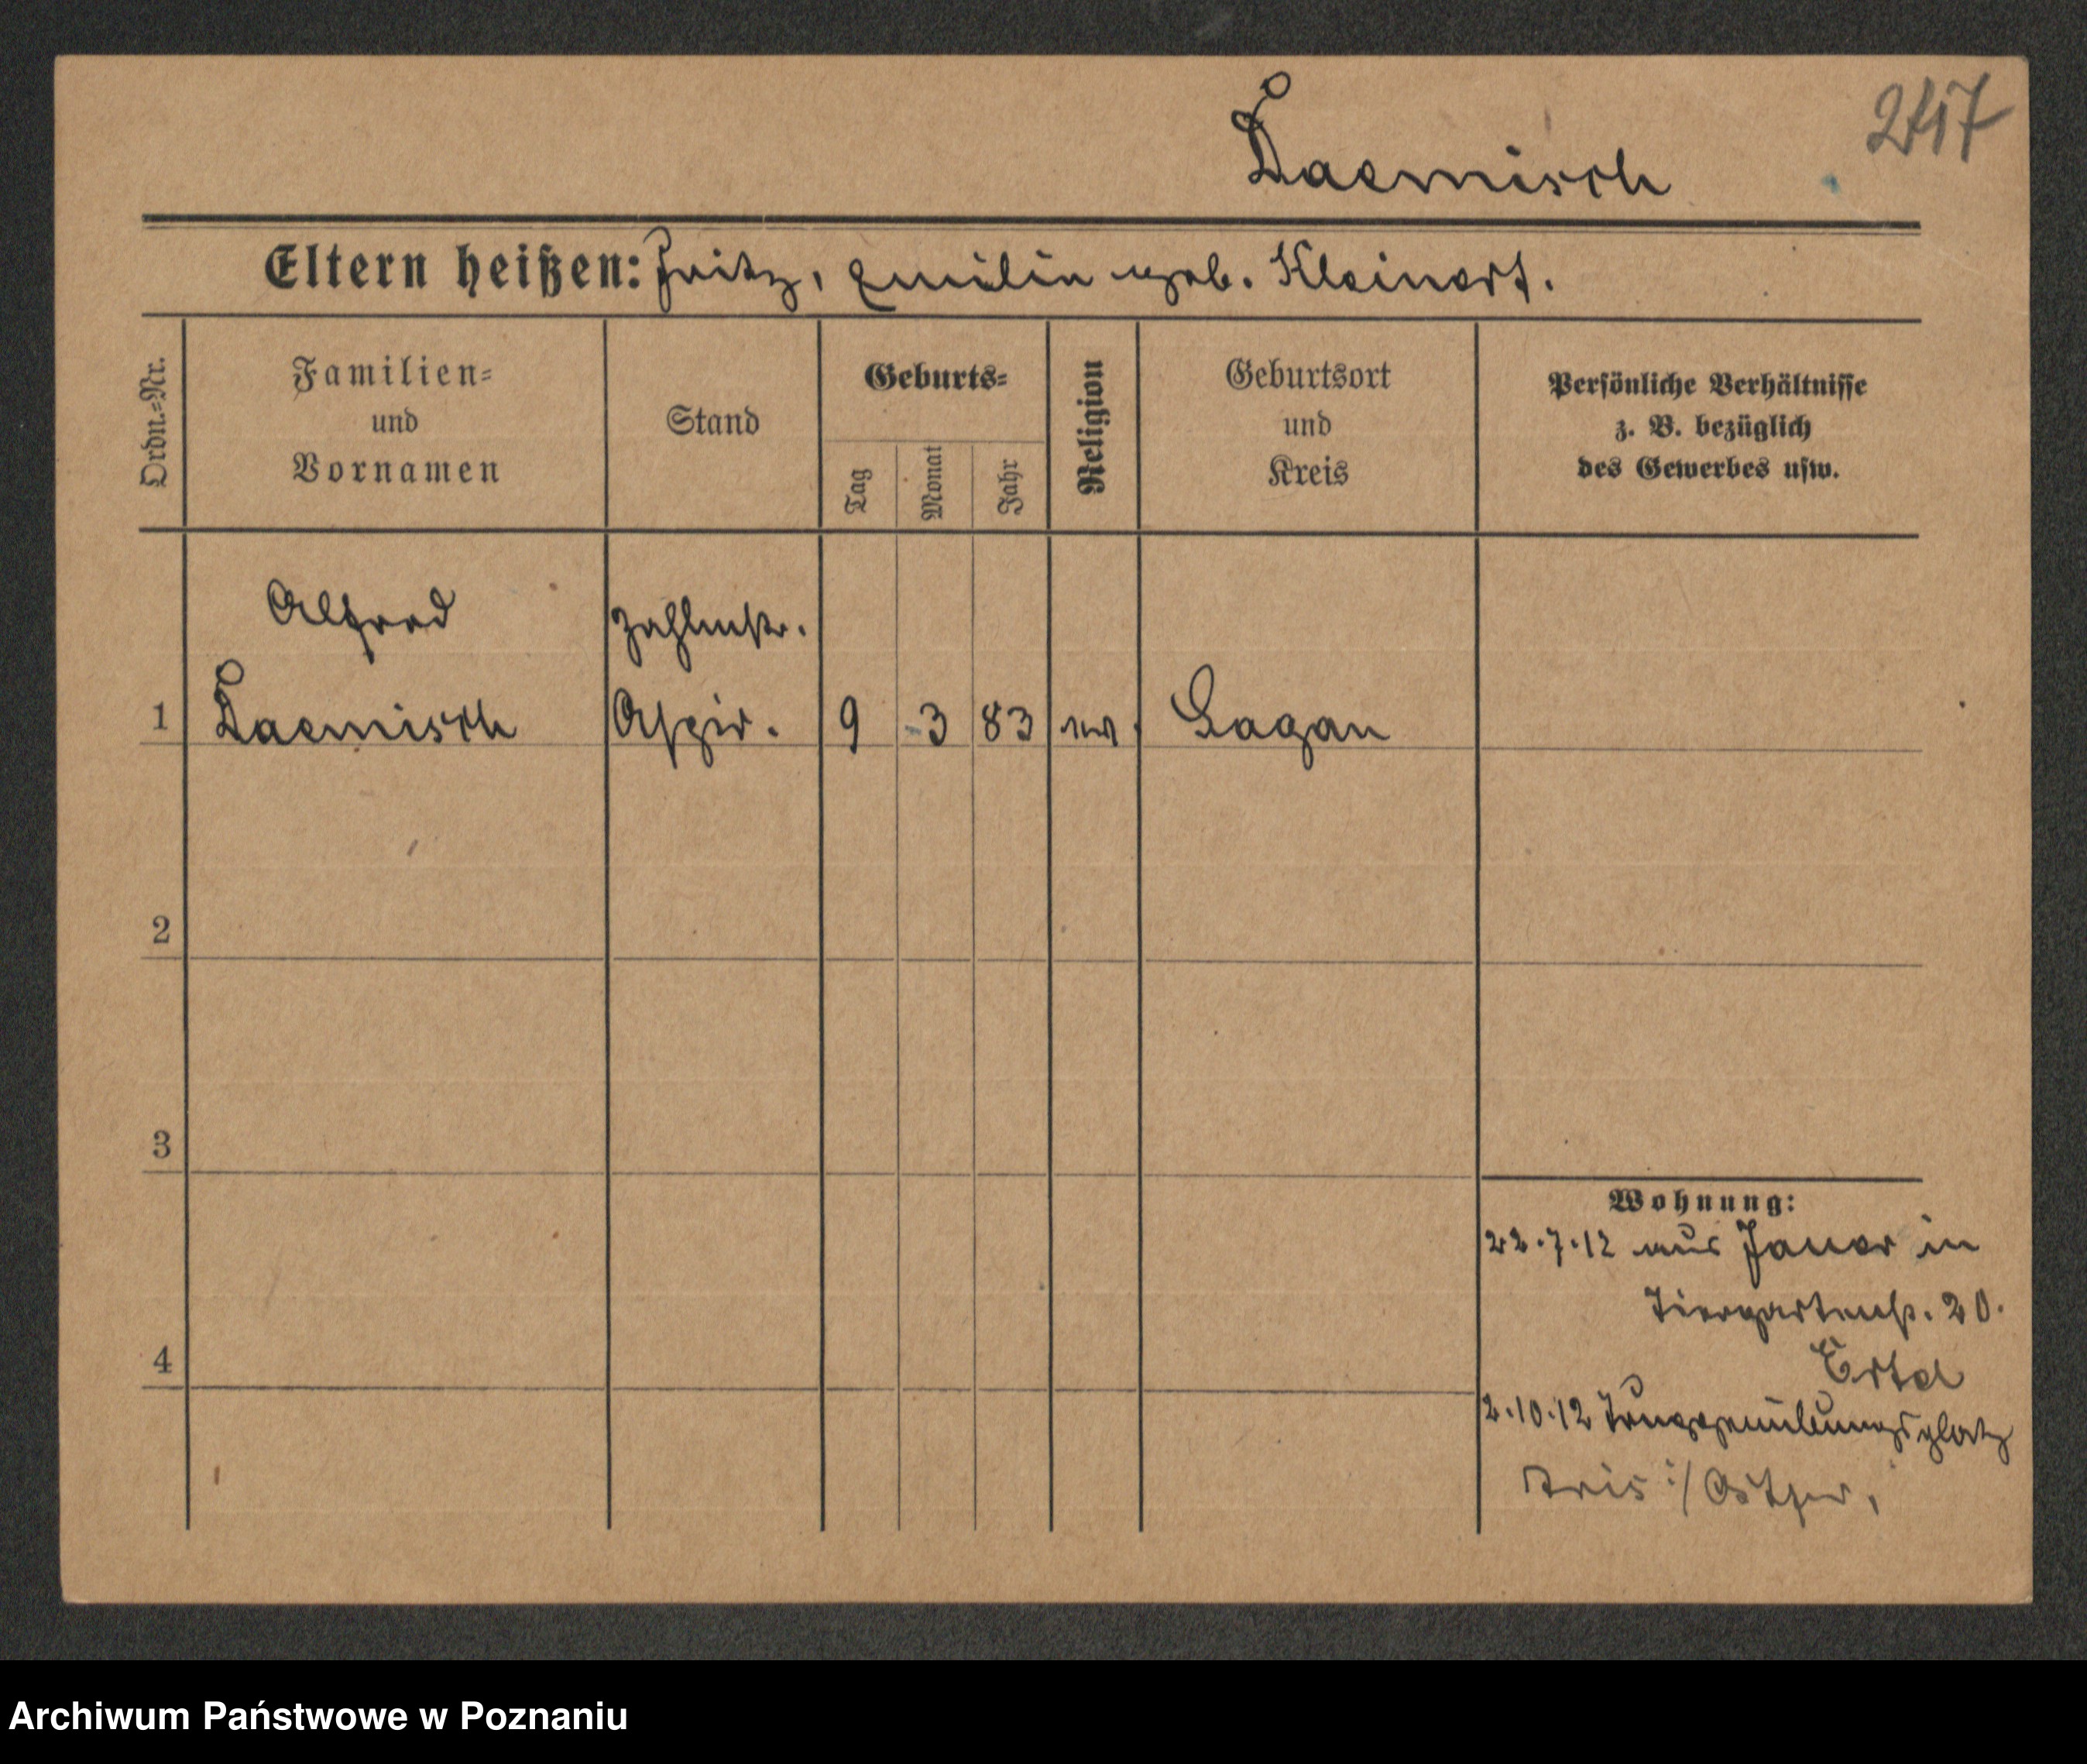 Daemisch
Eltern heißen: Fritz, Emilie geb. Kleinert.
Ordn.=Nr.
Familien=
und
Vornamen
Stand
Geburts=
Tag
Monat
Jahr
Religion
Geburtsort
und
Kreis
Persönliche Verhältnisse
z. B. bezüglich
des Gewerbes usw.
Alfred Zahlmstr.
1 Daemisch Aspir. 9 3 83 ev. Sagan
2
3
4
Wohnung:
22.7.12 aus Jauer in
Tiergartenstr. 20.
Ertel
2.10.12 Truppenübungsplatz
Aris i/ Ostpr.
Archiwum Państwowe w Poznaniu